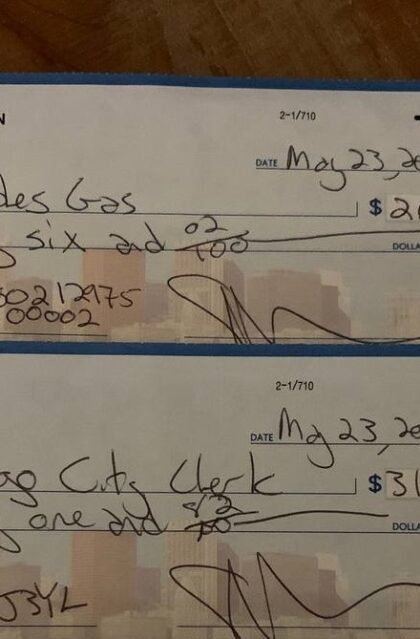 N
2-1/710
DATE May 23, 20
des Gas $ 2
six and 02/100 DOLLA
30212975
00002
2-1/710
DATE May 23, 20
ago City Clerk $ 31
one and 82/100 DOLLA
J3YL